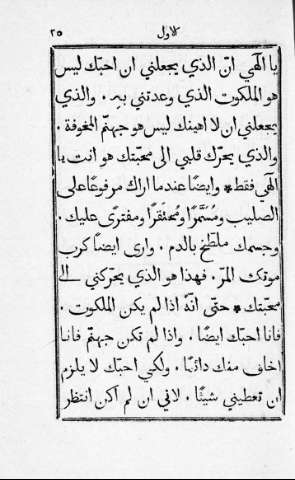 كلاول ٢٥
يا الٰهي انّ الذي يجعلني ان احبّك ليس
هو الملكوت الذي وعدتني بهِ . والذي
يجعلني ان لا اهينك ليس هو جهنّم المخوفة .
والذي يحرّك قلبي الى محبّتك هو انت يا
الٰهي فقط * وايضًا عندما اراك مرفوعًا على
الصليب ومُسَمَّرًا ومُحتَقَرًا ومفترًى عليك .
وجسمك ملطّخ بالدم . وارى ايضًا كرب
موتك المرّ . فهذا هو الذي يحرّكني الى
محبّتك * حتى انّهُ اذا لم يكن الملكوت .
فانا احبّك ايضًا . واذا لم تكن جهنّم فانا
اخاف منك دائمًا . ولكي احبّك لا يلزم
ان تعطيني شيئًا . لانّي ان لم اكن انتظر